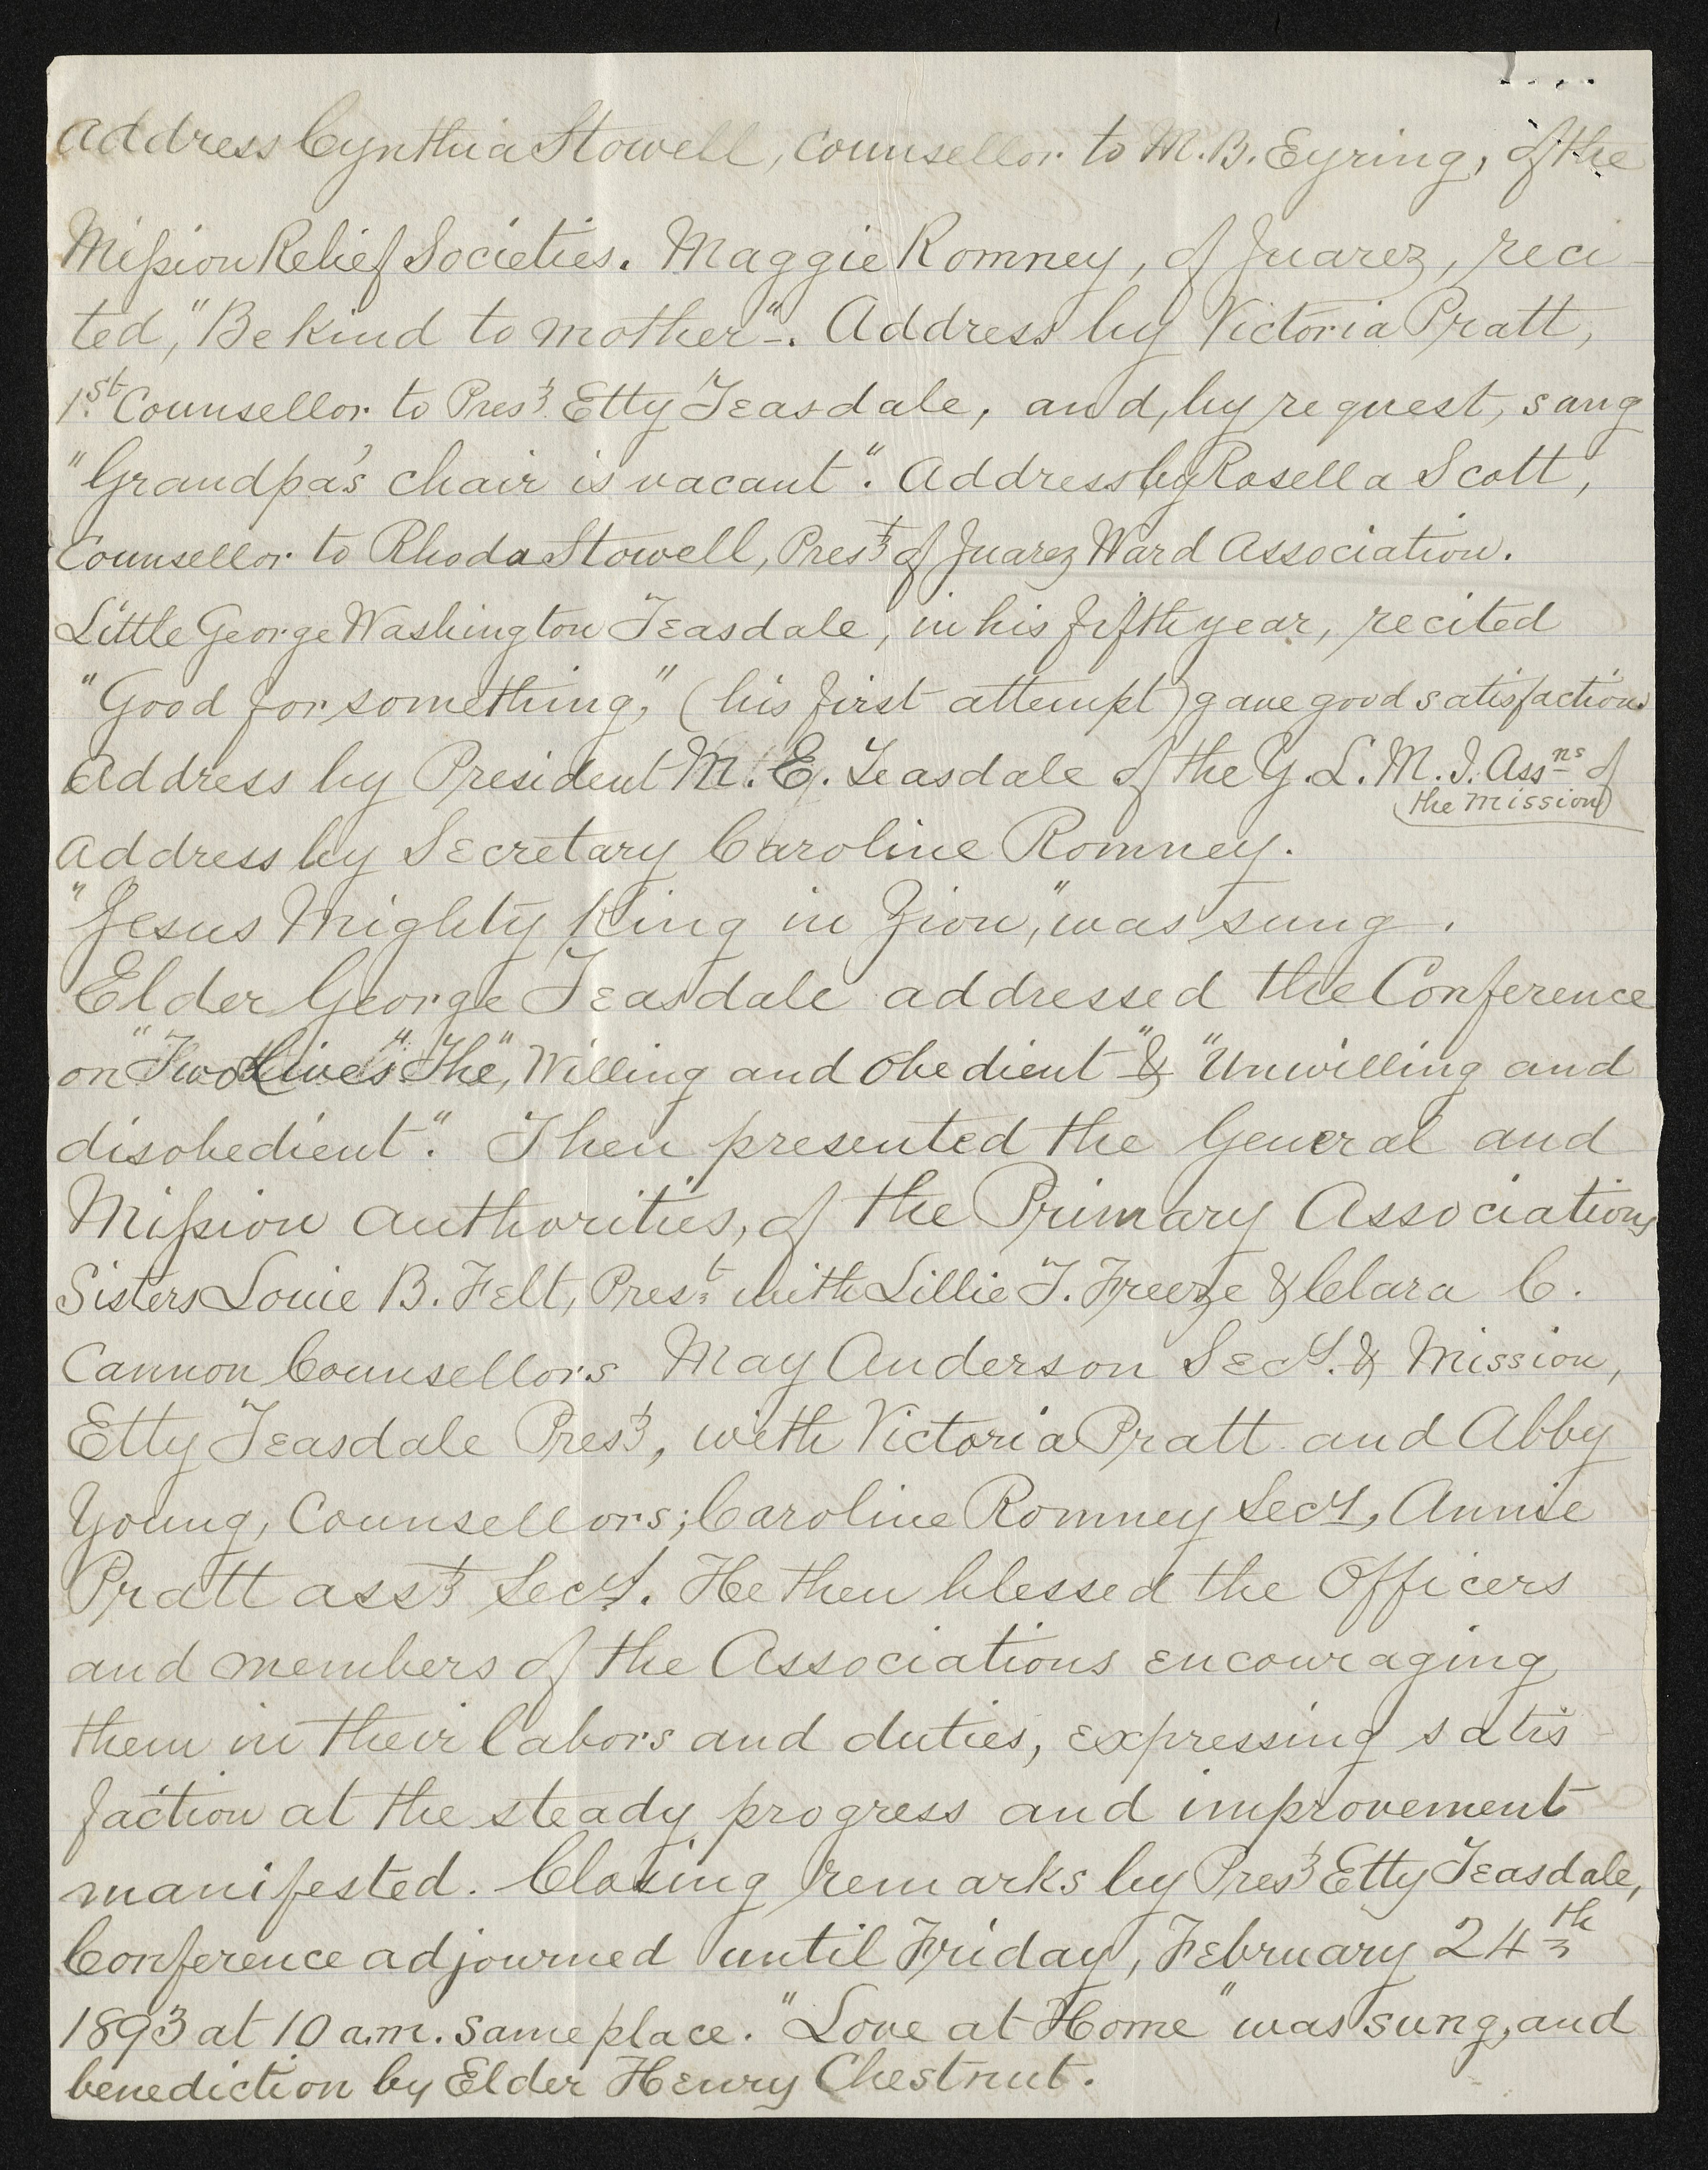 Address Cynthia Stowell, Counsellor to M. B. Eyring, of the
Mission Relief Societies. Maggie Romney, of Juarez, reci-
ted, "Be kind to mother". Address by Victoria Pratt,
1st Counsellor to Prest Etty Teasdale, and, by request, sang
"Grandpa's chair is vacant". Address by Rosella Scott,
Counsellor to Rhoda Stowell, Prest of Juarez Ward Association.
Little George Washington Teasdale, in his fifth year, recited
"Good for something," (his first attempt) gave good satisfaction.
Address by President M. E. Teasdale of the Y. L. M. I. Assns of
the mission
Address by Secretary Caroline Romney.
"Jesus Mighty King in Zion," was sung.
Elder George Teasdale addressed the Conference
on "Two Lives" The "Willing and obedient" & "Unwilling and
disobedient". Then presented the General and
Mission authorities, of the Primary Associations
Sisters Louie B. Felt, Prest with Lillie T. Freeze & Clara C.
Cannon Counsellors May Anderson Secy. & Mission,
Etty Teasdale Prest, with Victoria Pratt and Abby
Young, Counsellors; Caroline Romney Secy, Annie
Pratt asst Secy. He then blessed the Officers
and members of the Associations encouraging
them in their labors and duties, expressing satis-
faction at the steady progress and improvement
manifested. Closing remarks by Prest Etty Teasdale,
Conference adjourned until Friday, February 24th
1893 at 10 a.m. same place. "Love at Home" was sung, and
benediction by Elder Henry Chestnut.